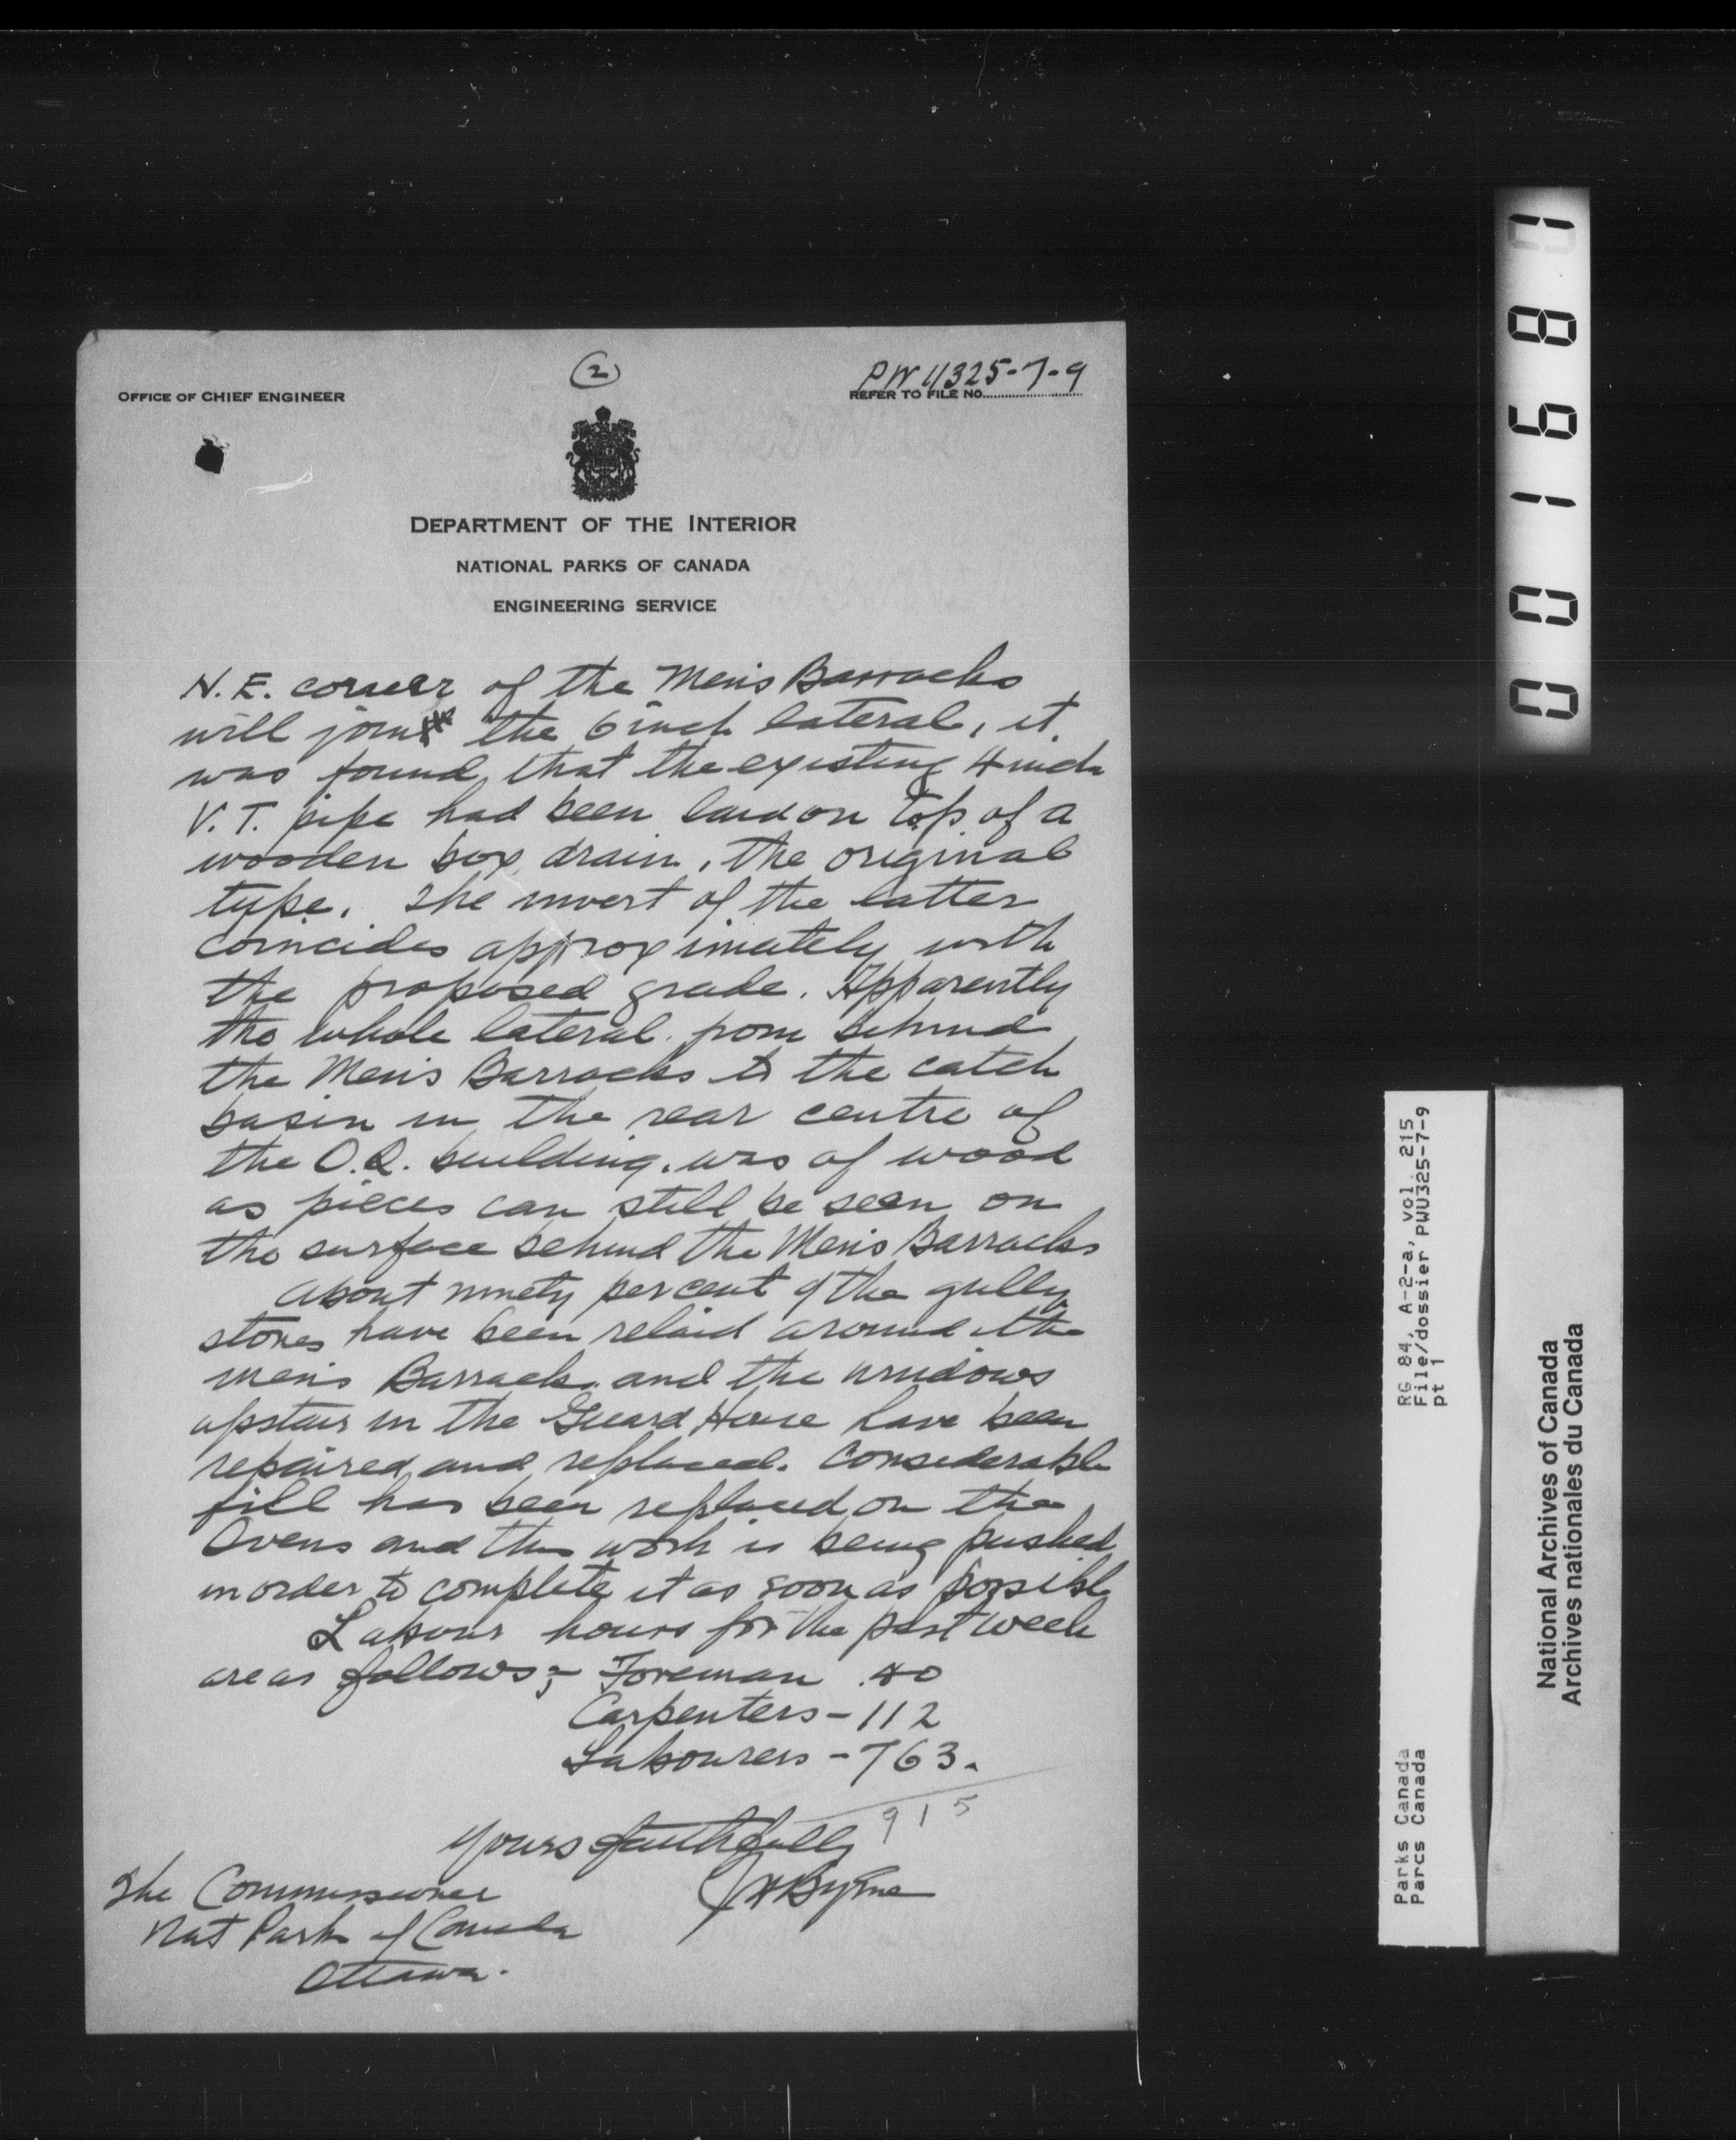 (2)
PW U325-7-9
OFFICE OF CHIEF ENGINEER
REFER TO FILE NO.
DEPARTMENT OF THE INTERIOR
NATIONAL PARKS OF CANADA
ENGINEERING SERVICE
N.E. corner of the Men's Barracks
will join the 6 inch lateral, it
was found that the existing 4 inch
V.T. pipe had been laid on top of a
wooden box drain, the original
type. The invert of the latter
coincides approximately with
the proposed grade. Apparently
the whole lateral from behind
the Men's Barracks to the catch
basin in the rear centre of
the O.Q. building, was of wood
as pieces can still be seen on
the surface behind the Men's Barracks
About ninety percent of the gully
stones have been relaid around the
men's Barracks and the windows
upstairs in the Guard House have been
repaired and replaced. Considerable
fill has been replaced on the
Ovens and this work is being pushed
in order to complete it as soon as possible
Labour hours for the past week
are as follows;- Foreman 40
Carpenters - 112
Labourers - 763.
915
Yours faithfully
JHByrne
The Commissioner
Nat Parks of Canada
Ottawa.
001681
RG 84, A-2-a, vol. 215
File/dossier PWU325-7-9
pt 1
Parks Canada
Parcs Canada
National Archives of Canada
Archives nationales du Canada